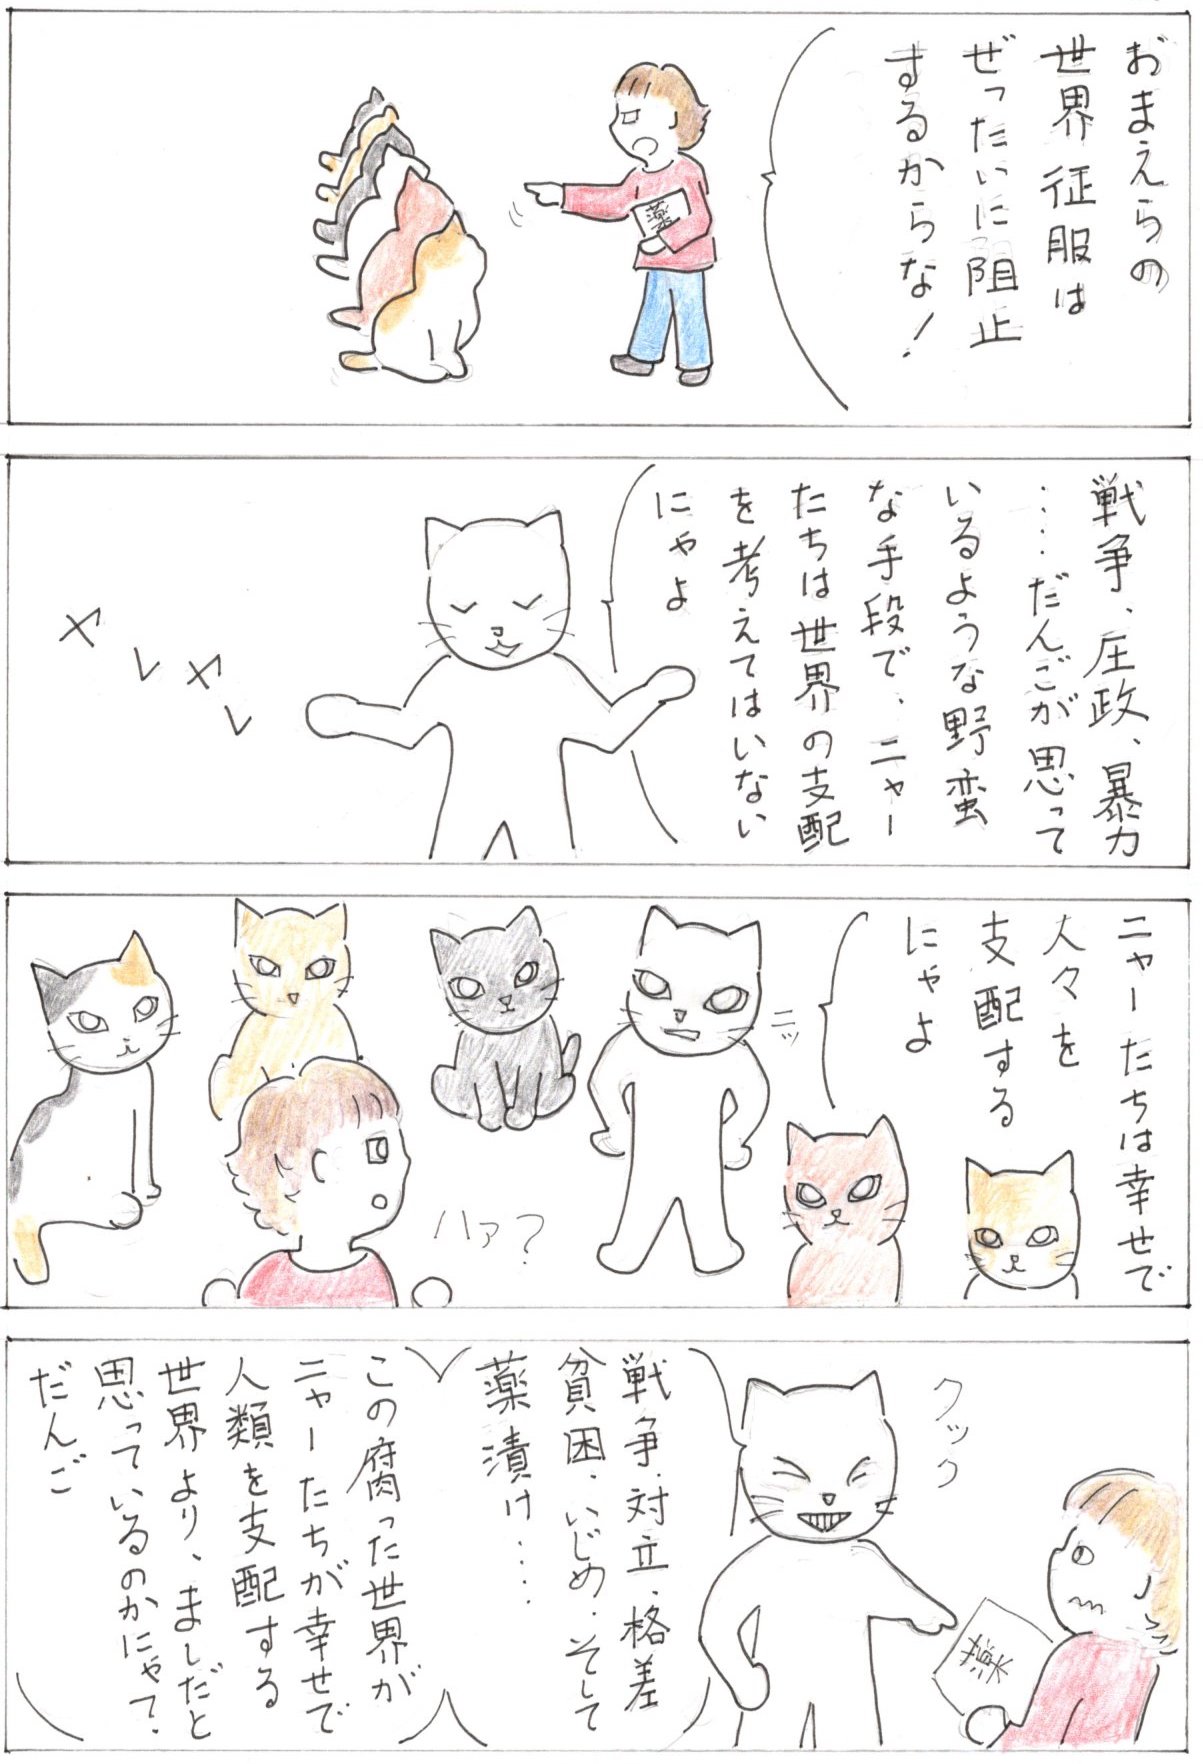 おまえらの
世界征服は
ぜったいに阻止
するからな!
薬
戦争、圧政、暴力
……だんごが思って
いるような野蛮
な手段で、ニャー
たちは世界の支配
を考えてはいない
にゃよ
ヤレヤレ
ニャーたちは幸せで
人々を
支配する
にゃよ
ニッ
ハァ?
クックク
戦争、対立、格差
貧困、いじめ、そして
薬漬け……
この腐った世界が
ニャーたちが幸せで
人類を支配する
世界より、ましだと
思っているのかにゃて、
だんご
薬